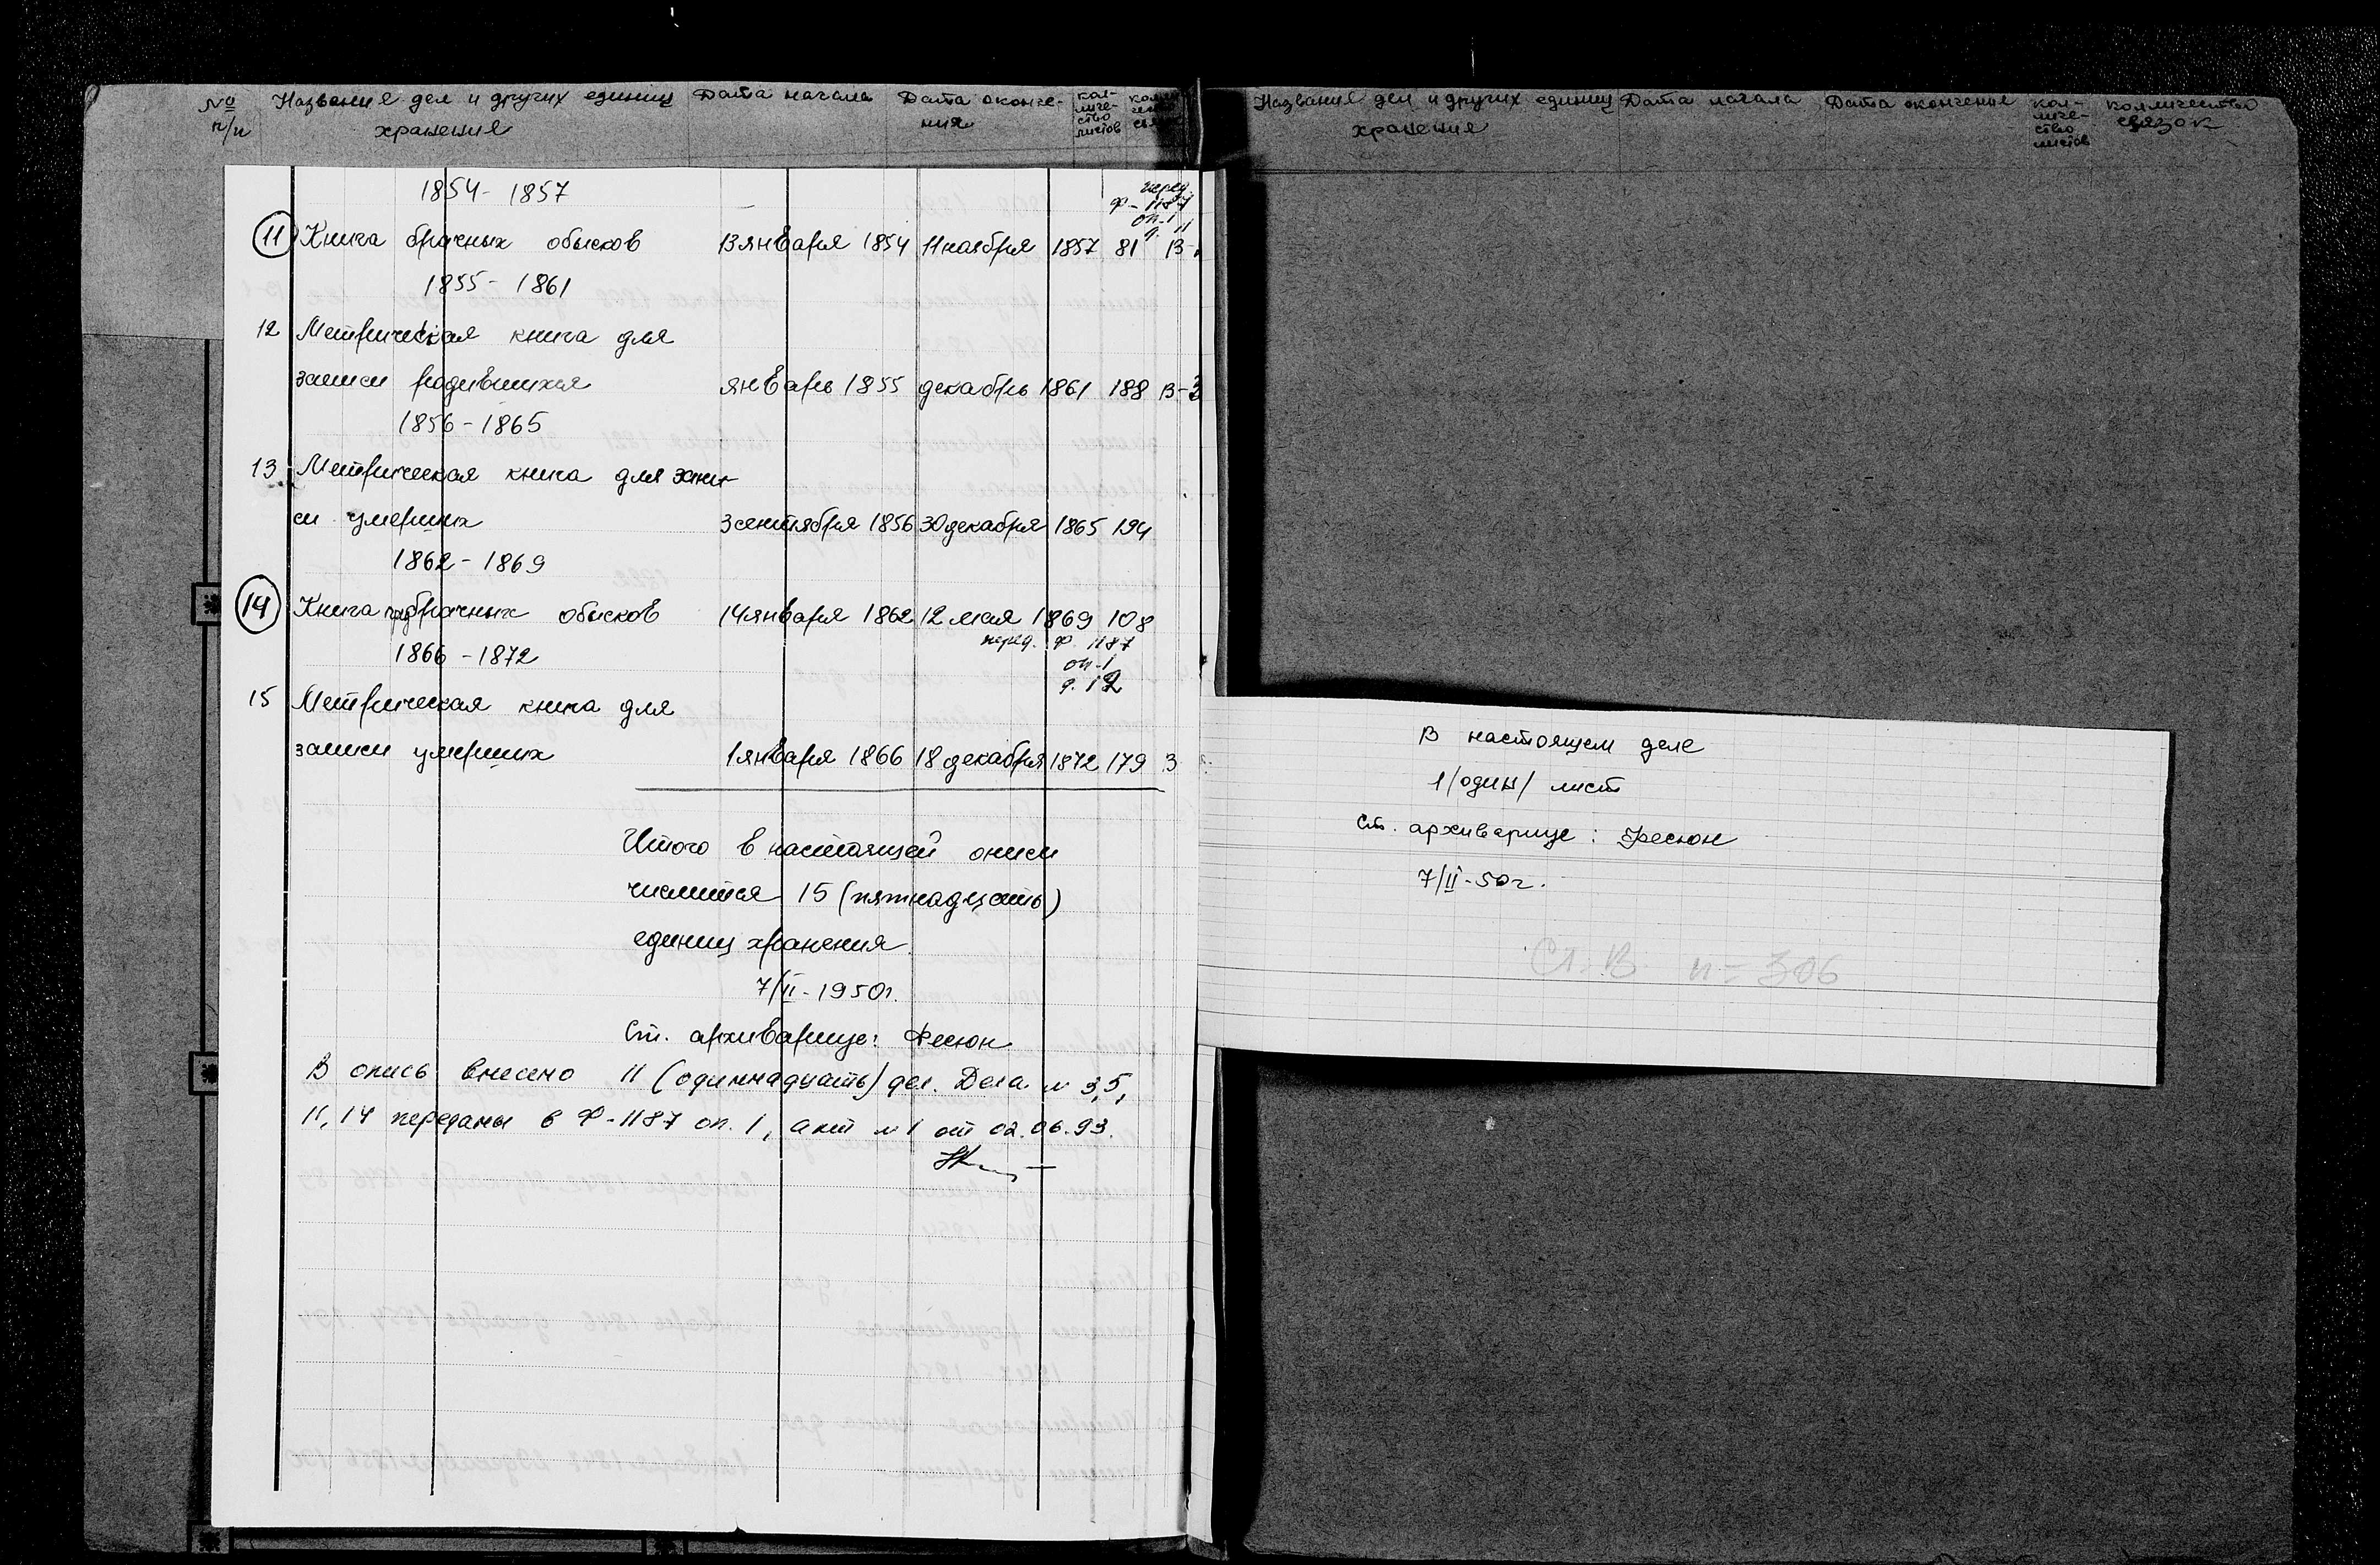 № п/п Название дел и других единиц хранения Дата начала Дата оконче-ния кол-личе-ство листов
1854 - 1857
перед.
Ф-1187
оп-1
д. 11
11 Книга брачных обысков 13 января 1854 11 ноября 1857 81 В-
1855 - 1861
12 Метрическая книга для
записи родившихся январь 1855 декабрь 1861 188 В-3
1856 - 1865
13 Метрическая книга для запи-
си умерших 3 сентября 1856 30 декабря 1865 194
1862 - 1869
14 Книга брачных обысков 14 января 1862 12 мая 1869 108
перед. Ф. 1187
оп-1
д. 12
1866 - 1872
15 Метрическая книга для
записи умерших 1 января 1866 18 декабря 1872 179 3
Итого в настоящей описи
числится 15 (пятнадцать)
единиц хранения.
7/II - 1950г.
Ст. архивариус: Фесюн
В опись внесено 11 (одиннадцать) дел. Дела № 3, 5,
11, 14 переданы в Ф-1187 оп. 1, акт №1 от 02.06.93.
Название дел и других единиц хранения Дата начала Дата окончения кол-личе-ство листов колличество связок
В настоящем деле
1 /один/ лист
Ст. архивариус: Фесюн
7/II - 50г.